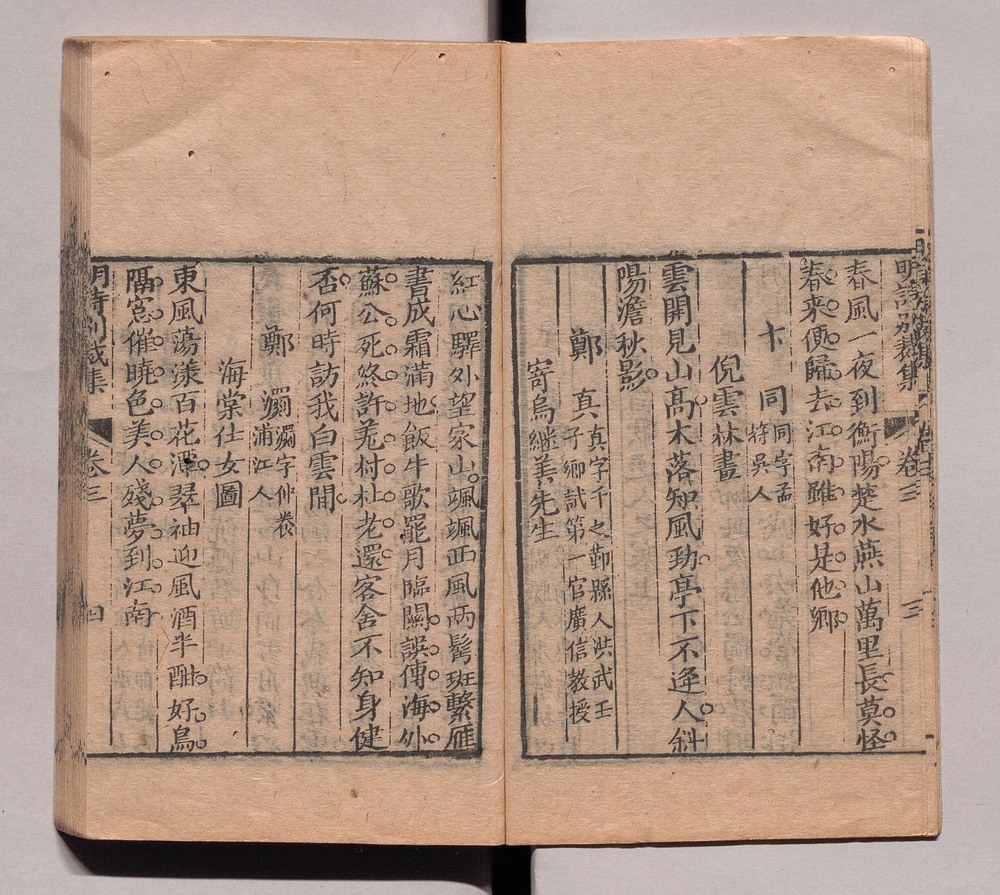 明詩別裁集 卷三 三
春風一夜到衡陽楚水燕山萬里長莫怪
春来便歸去江南雖好是他鄉
卞同 同字孟將吳人
倪雲林畫
雲開見山髙木落知風劲亭下不逢人斜
陽澹秋影
鄭真 真字千之鄞縣人洪武壬子鄉試第一官廣信教授
寄烏継美先生
紅心驛外望家山颯颯西風兩鬢斑繫雁
書成霜滿地飯牛歌罷月臨關誤傳海外
蘇公死終許羌村杜老還客舍不知身健
否何時訪我白雲間
鄭 字仲 浦江人
海棠仕女圖
東風蕩漾百花潭翠袖迎風酒半酣好鳥
隔窓催曉色美人殘夢到江南
明詩別裁集 卷三 四